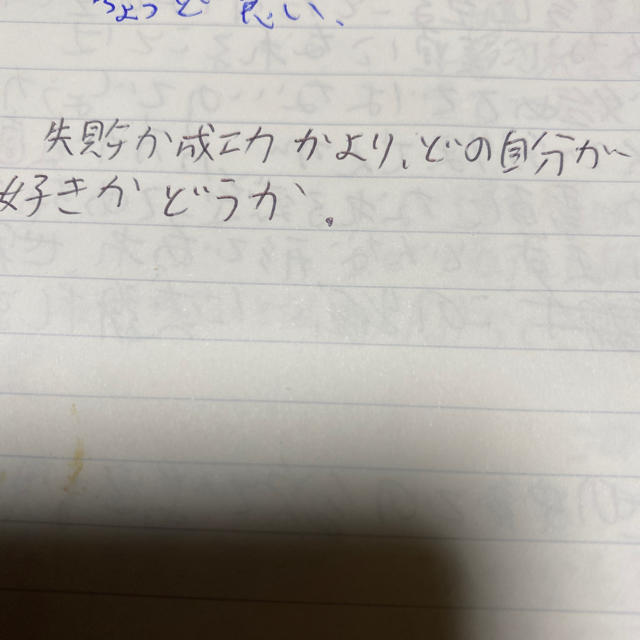 ちょっと悲しい、
失敗か成功かより、どの自分が
好きかどうか。